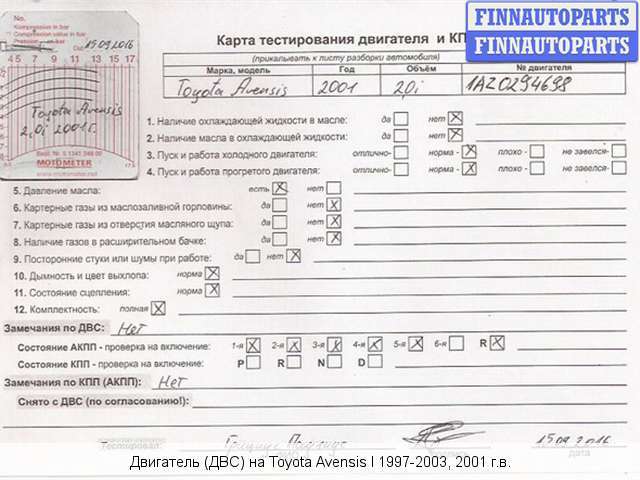 FINNAUTOPARTS
FINNAUTOPARTS
No.
Kompression in bar
Compression value in bar
Pression en bar
Dat 15.09.2016
4 5 7 9 11 13 15 17
Toyota Avensis
2.0i 2001г.
MOTOMETER
www.motometer.net
Карта тестирования двигателя и КП
(прикалывать к листу разборки автомобиля)
Марка, модель Год Объём № двигателя
Toyota Avensis 2001 2.0i 1AZ0294698
1. Наличие охлаждающей жидкости в масле: да нет X
2. Наличие масла в охлаждающей жидкости: да нет X
3. Пуск и работа холодного двигателя: отлично- норма - X плохо - не завелся-
4. Пуск и работа прогретого двигателя: отлично- норма - X плохо - не завелся-
5. Давление масла: есть X нет
6. Картерные газы из маслозаливной горловины: да нет X
7. Картерные газы из отверстия масляного щупа: да нет X
8. Наличие газов в расширительном бачке: да нет X
9. Посторонние стуки или шумы при работе: да нет X
10. Дымность и цвет выхлопа: норма X
11. Состояние сцепления: норма X
12. Комплектность: полная X
Замечания по ДВС: Нет
Состояние АКПП - проверка на включение: 1-я X 2-я X 3-я X 4-я X 5-я X 6-я R X
Состояние КПП - проверка на включение: P R N D
Замечания по КПП (АКПП): Нет
Снято с ДВС (по согласованию!):
Тестировал: 15.09.2016
дата
Двигатель (ДВС) на Toyota Avensis I 1997-2003, 2001 г.в.